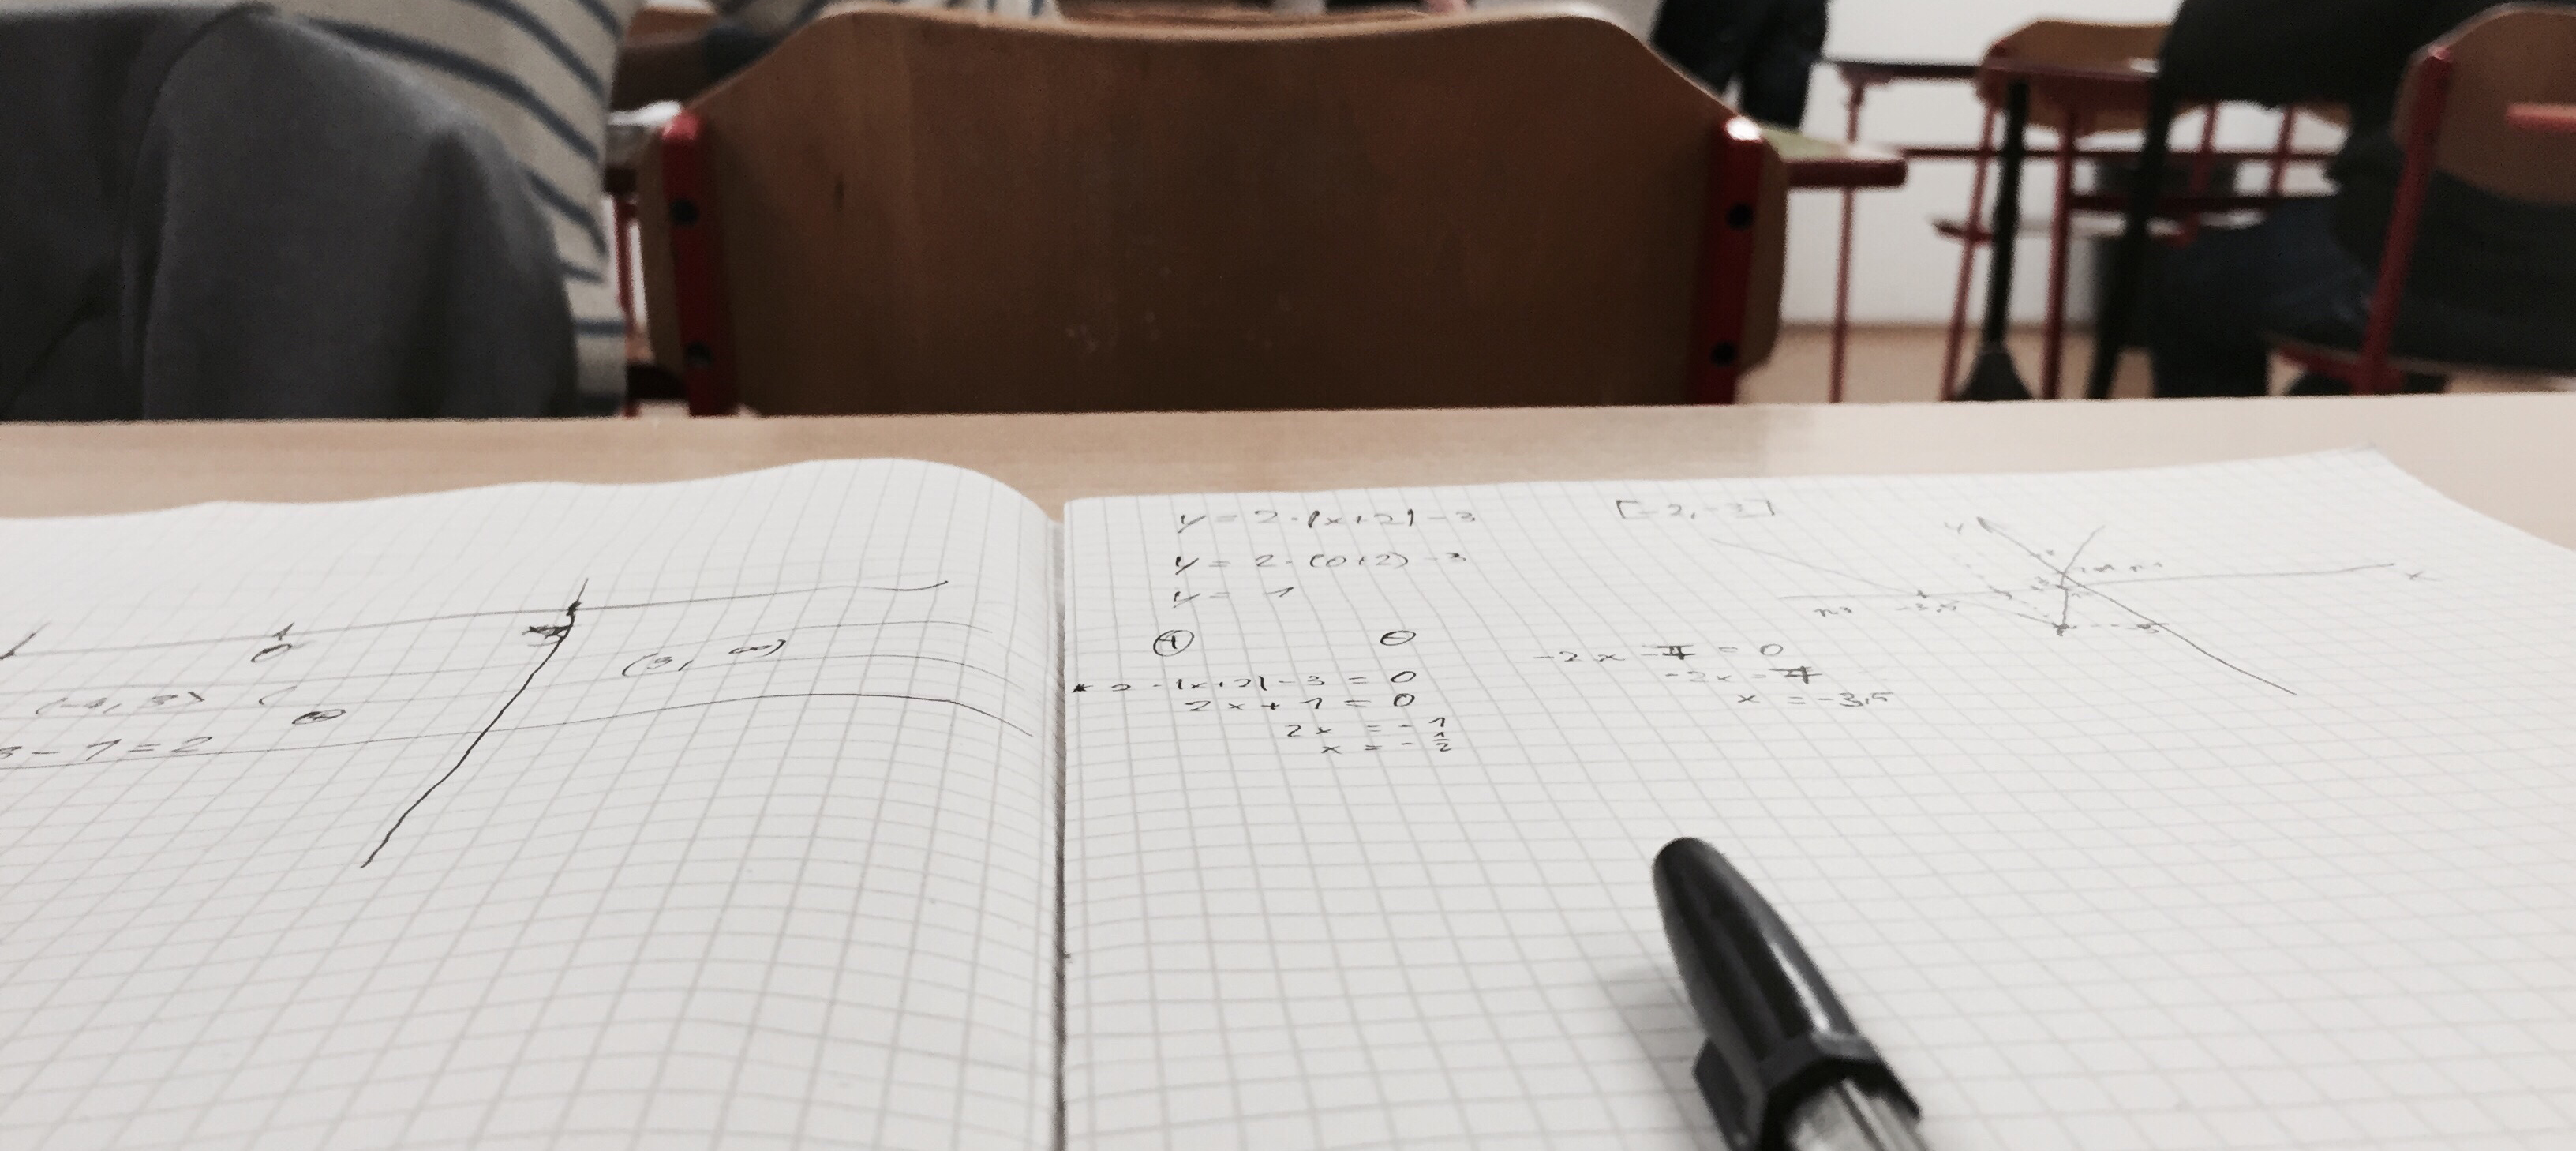 0
(-1, 3)
3-7=2
(3, ∞)
y = 2·|x+2|-3
y = 2·(0+2)-3
y = 1
[-2,-3]
⊕ ⊖
2·|x+2|-3 = 0
2x+1 = 0
2x = -1
x = -1/2
-2x-7 = 0
-2x = 7
x = -3,5
y
x
-3,5
-3